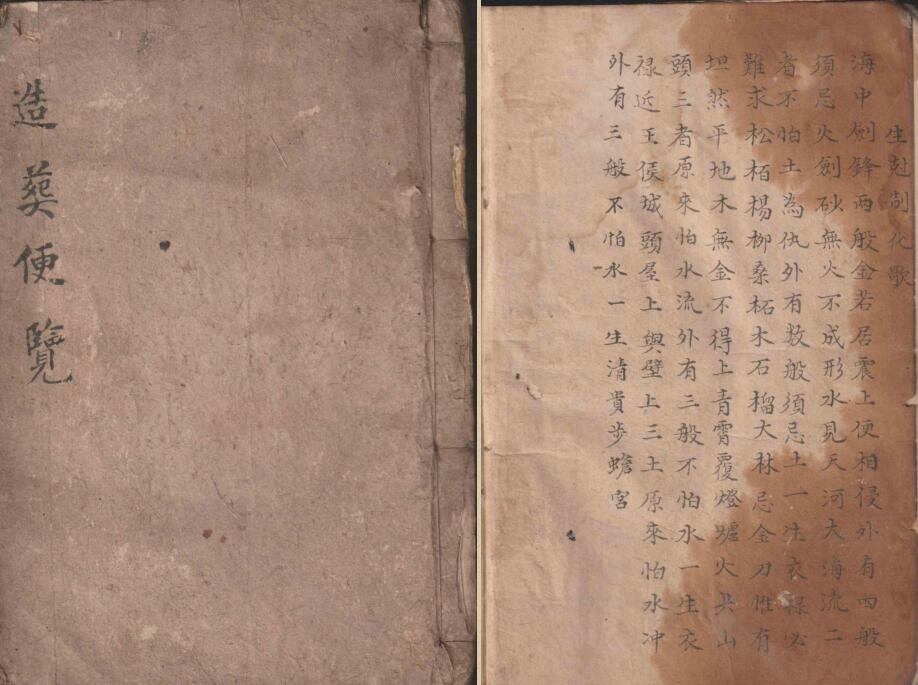 造葬便覽
生尅制化歌
海中劍鋒兩般金若居震上便相侵外有四般
須忌火劍砂無火不成形水見天河大海流二
者不怕土為仇外有数般須忌土一生衣禄必
難求松栢楊柳桑柘木石榴大林忌金刀惟有
坦然平地木無金不得上青霄覆燈爐火共山
頭三者原來怕水流外有三般不怕水一生衣
禄近王侯城頭屋上與壁上三土原來怕水冲
外有三般不怕水一生清貴步蟾宮